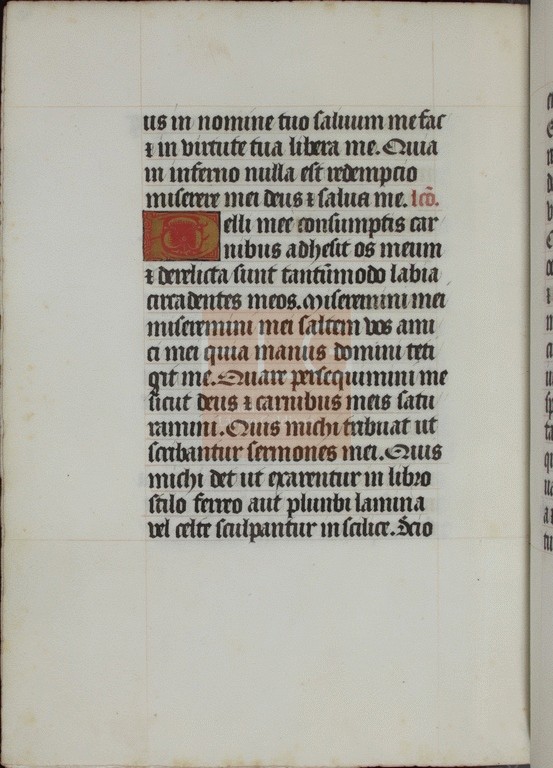 us in nomine tuo saluum me fac
⁊ in virtute tua libera me. Quia
in inferno nulla est redemptio
miserere mei deus ⁊ salua me. lcō.
Pelli mee consumptis car
nibus adhesit os meum
⁊ derelicta sunt tantūmodo labia
circa dentes meos. Miseremini mei
miseremini mei saltem vos ami
ci mei quia manus domini teti
git me. Quare persequimini me
sicut deus ⁊ carnibus meis satu
ramini. Quis michi tribuat ut
scribantur sermones mei. Quis
michi det ut exarentur in libro
stilo ferreo aut plunbi lamina
vel celte sculpantur in scilice. Scio